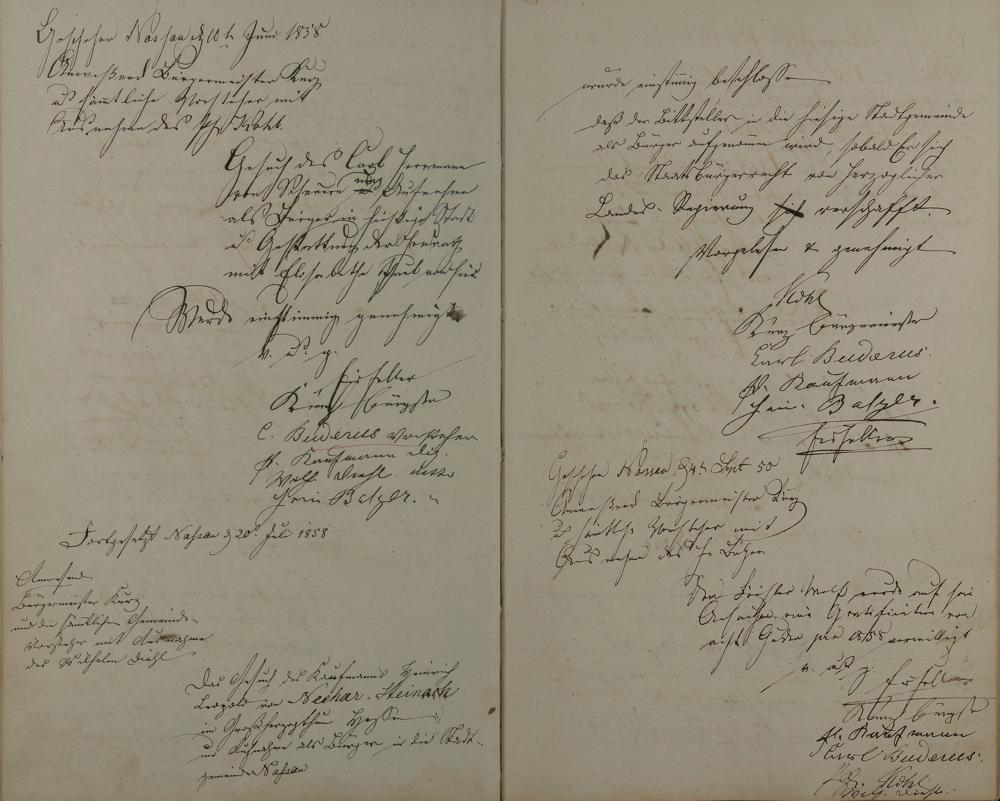 Geschehen Nassau d 10t. Juni 1858
Anwesend Bürgermeister Kurz
u. sämtliche Vorsteher mit
Ausnahme des Ph Kohl.
Gesuch des Carl Herrmann
von um Aufnahme
als Bürger in hiesige Stadt
u. Gestattung der Heurath
mit Elisabetha
Wurde einstimmig genehmigt
v. u. g.
Kurz Bürgstr
C. Buderus Vorsteher
Ph. Kaufmann
Wilh Diehl
Hein Balzer. "
Fortgesetzt Nassau d 20t Juli 1858
Anwesend
Bürgermeister Kurz
und die sämtlichen Gemeinde-
Vorsteher mit Ausnahme
des Wilhelm Diehl
Das Gesuch des Kaufmanns Heinrich
Leopold von Neckar-Steinach
im Großherzogthum Hessen
um Aufnahme als Bürger in die Stadt-
gemeinde Nassau
wurde einstimig beschlossen
daß der Bittsteller in die hiesige Stadtgemeinde
als Bürger aufgenomen wird, sobald Er sich
das Staatsbürgerrecht von Herzoglicher
Landes-Regierung sich verschafft.
Vorgelesen & genehmigt
Kohl
Kurz Bürgermeister
Carl Buderus.
Ph. Kaufmann
Hein. Balzer.
Geschehen Nassau d 4t Sept 58
Anwesend Bürgermeister Kurz
u. sämtliche Vorsteher mit
Ausnahme des
Dem Förster wurde auf sein
Ansuchen eine Gratification von
acht Gulden pro 1858 verwilligt
v. u. g.
Kurz Bürgstr
Ph. Kaufmann
Carl Buderus.
Kohl
Wilh. Diehl.